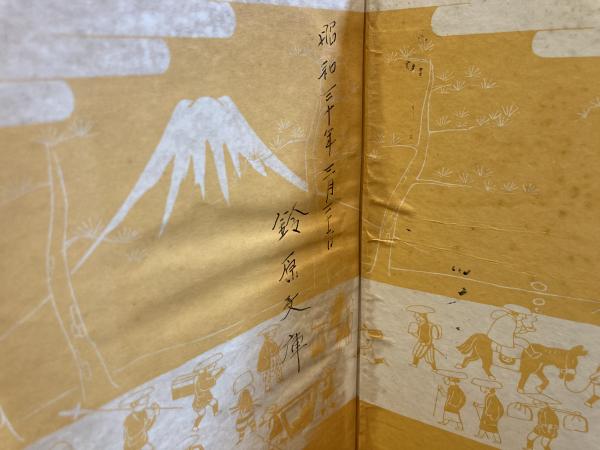 昭和三十年三月二十日
鈴原文庫